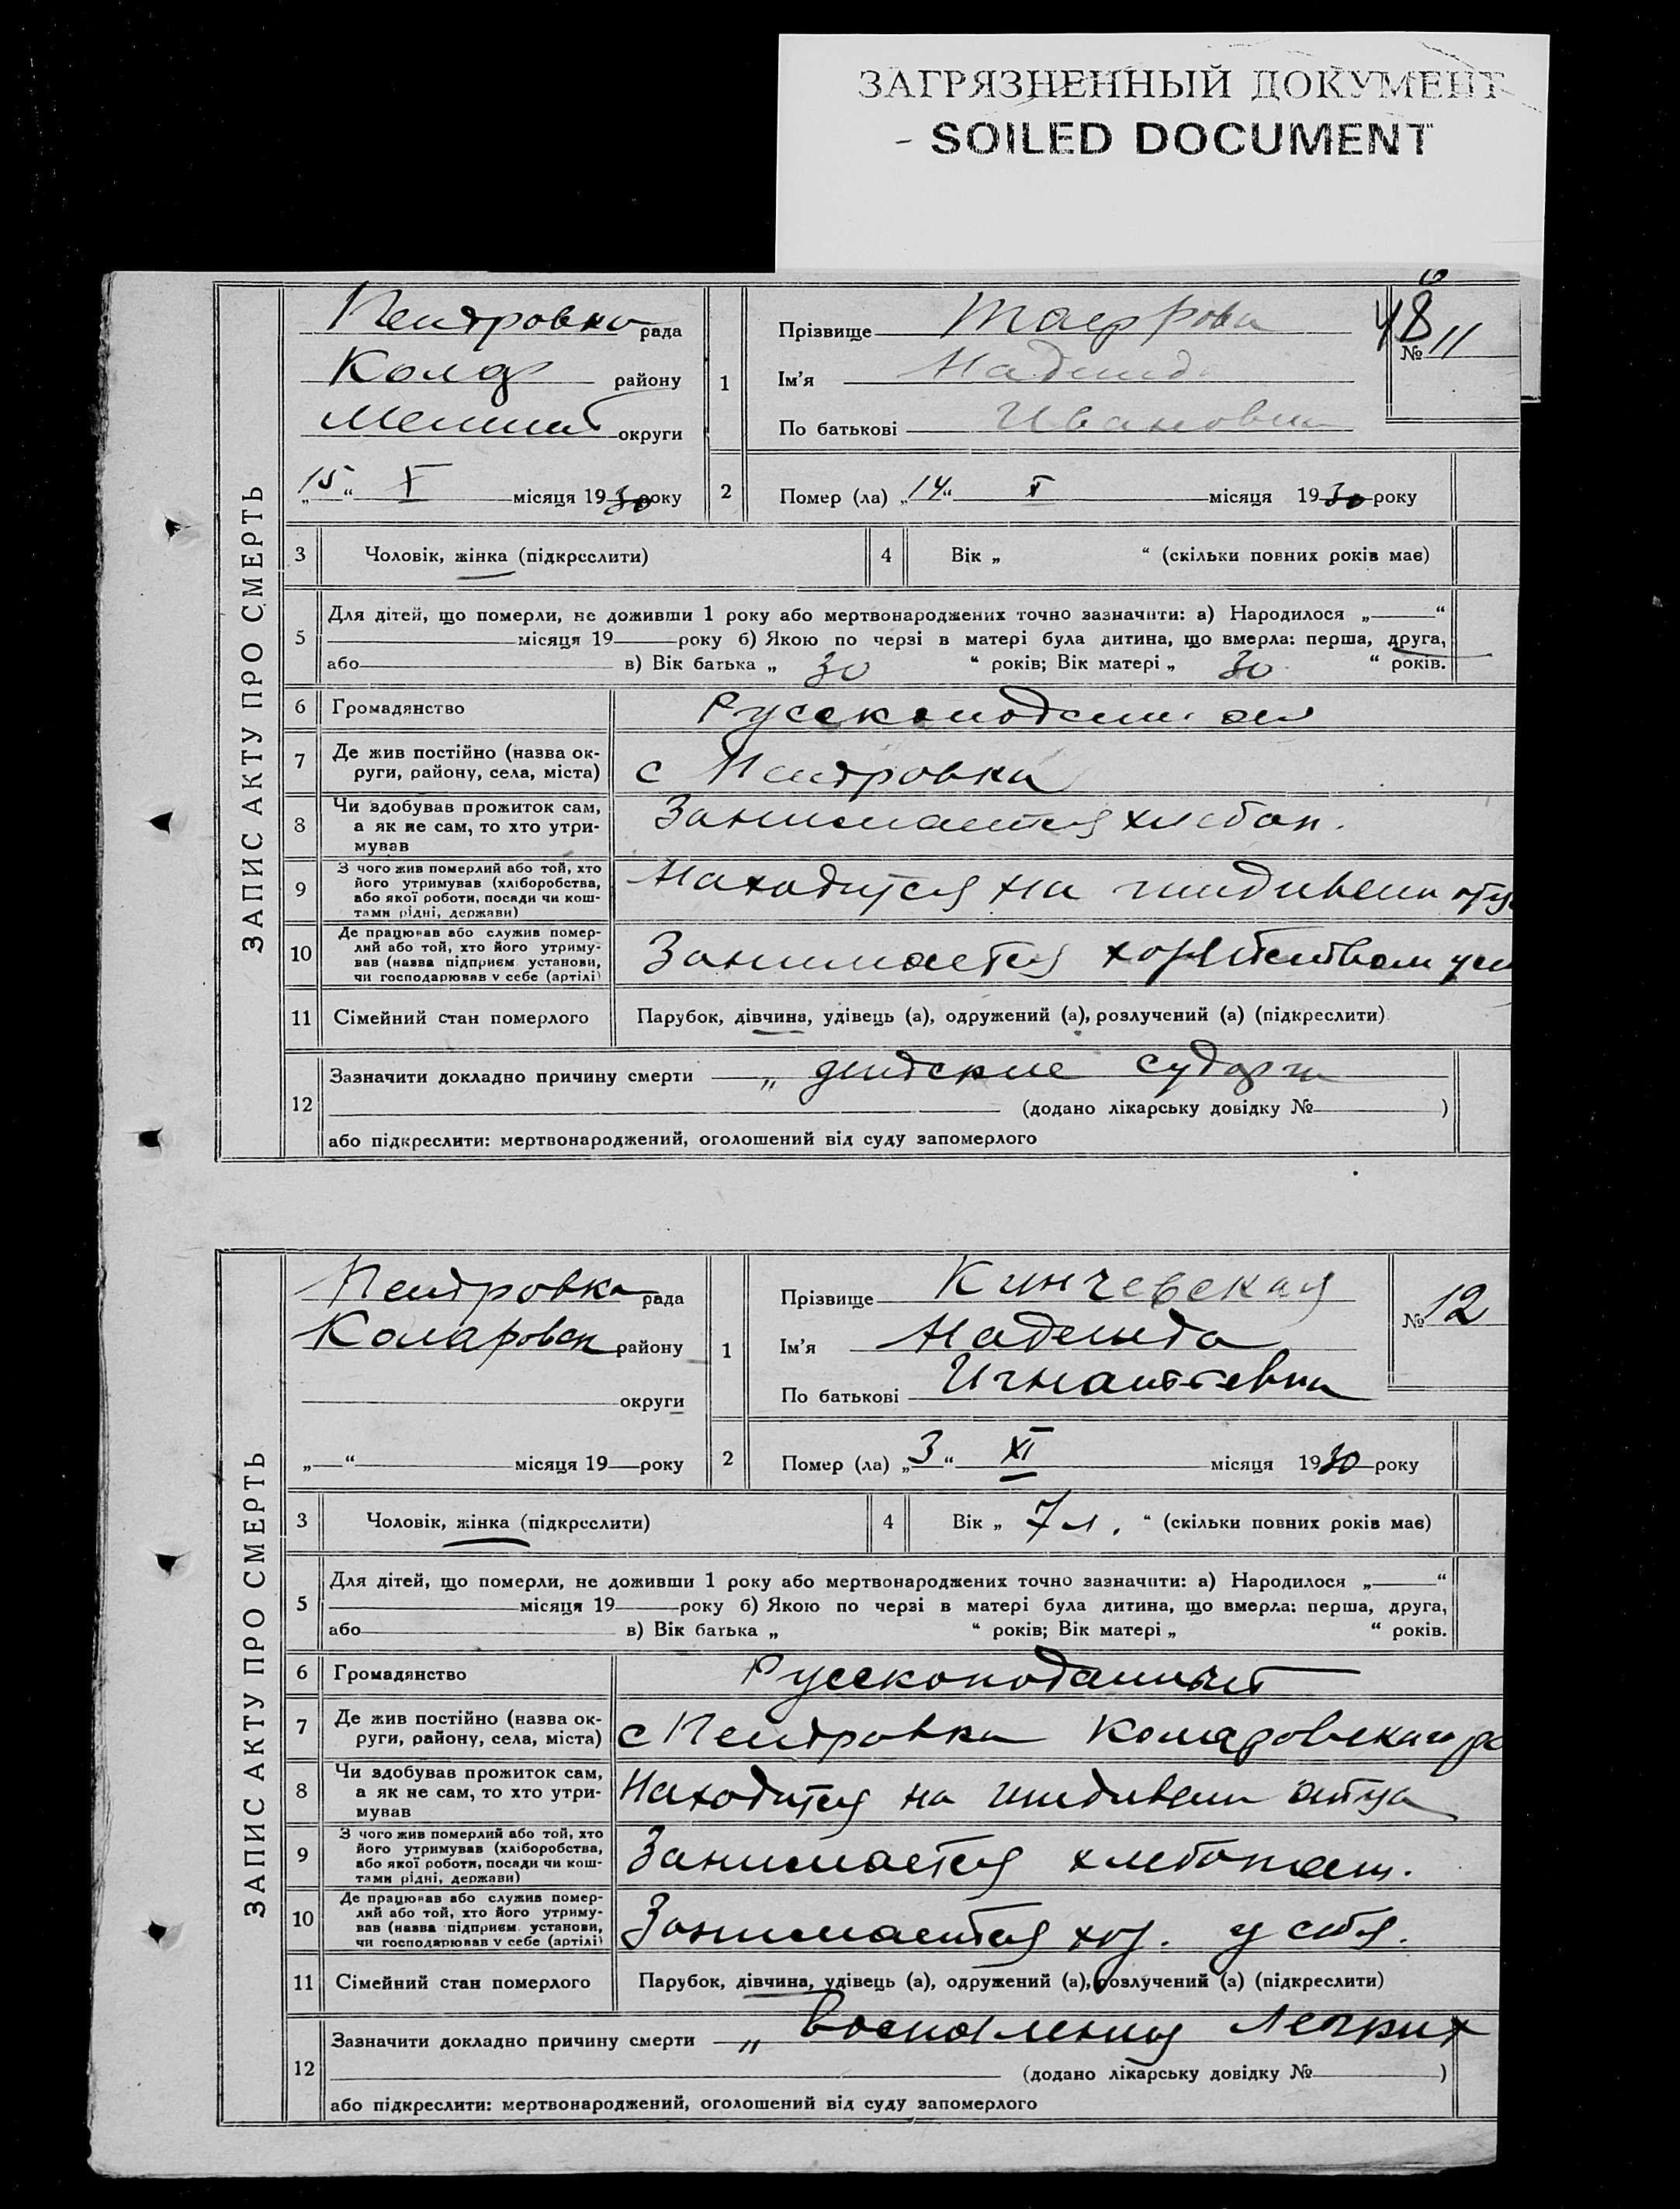 ЗАГРЯЗНЕННЫЙ ДОКУМЕНТ
- SOILED DOCUMENT
ЗАПИС АКТУ ПРО СМЕРТЬ
Петровка рада
района
Мелит округи
„15“ X місяця 1930 року
1
Прізвище
Ім'я Надежда
По батькові Ивановна
48
№ 11
2 Помер (ла) „14“ X місяця 1930 року
3 Чоловік, жінка (підкреслити)
4 Вік „ “ (скільки повних років має)
5 Для дітей, що померли, не доживши 1 року або мертвонароджених точно зазначити: а) Народилося „ “
місяця 19 року б) Якою по черзі в матері була дитина, що вмерла: перша, друга,
або в) Вік батька „ 30 “ років; Вік матері „ 30 “ років.
6 Громадянство
7 Де жив постійно (назва ок-
руги, району, села, міста) с Петровка
8 Чи здобував прожиток сам,
а як не сам, то хто утри-
мував Занимается хлебоп.
9 З чого жив померлий або той, хто
його утримував (хліборобства,
або якої роботи, посади чи кош-
тами рідні, держави) Находится на иждивени отца
10 Де працював або служив помер-
лий або той, хто його утриму-
вав (назва підприєм. установи,
чи господарював у себе (артілі) Занимается
11 Сімейний стан померлого Парубок, дівчина, удівець (а), одружений (а), розлучений (а) (підкреслити)
12 Зазначити докладно причину смерти „ детские судорги
(додано лікарську довідку № )
або підкреслити: мертвонароджений, оголошений від суду запомерлого
ЗАПИС АКТУ ПРО СМЕРТЬ
Петровка рада
Коларовск району
округи
„ “ місяця 19 року
1
Прізвище Кинчевская
Ім'я Надежда
По батькові Игнатьевна
№ 12
2 Помер (ла) „3“ XI місяця 1930 року
3 Чоловік, жінка (підкреслити)
4 Вік „ 7 л. “ (скільки повних років має)
5 Для дітей, що померли, не доживши 1 року або мертвонароджених точно зазначити: а) Народилося „ “
місяця 19 року б) Якою по черзі в матері була дитина, що вмерла: перша, друга,
або в) Вік батька „ “ років; Вік матері „ “ років.
6 Громадянство
7 Де жив постійно (назва ок-
руги, району, села, міста) с Петровка Коларовскаго
8 Чи здобував прожиток сам,
а як не сам, то хто утри-
мував Находится на иждивени отца
9 З чого жив померлий або той, хто
його утримував (хліборобства,
або якої роботи, посади чи кош-
тами рідні, держави) Занимается хлебопаш.
10 Де працював або служив помер-
лий або той, хто його утриму-
вав (назва підприєм. установи,
чи господарював у себе (артілі) Занимается хоз. у себя.
11 Сімейний стан померлого Парубок, дівчина, удівець (а), одружений (а), розлучений (а) (підкреслити)
12 Зазначити докладно причину смерти „ воспаления Легких
(додано лікарську довідку № )
або підкреслити: мертвонароджений, оголошений від суду запомерлого